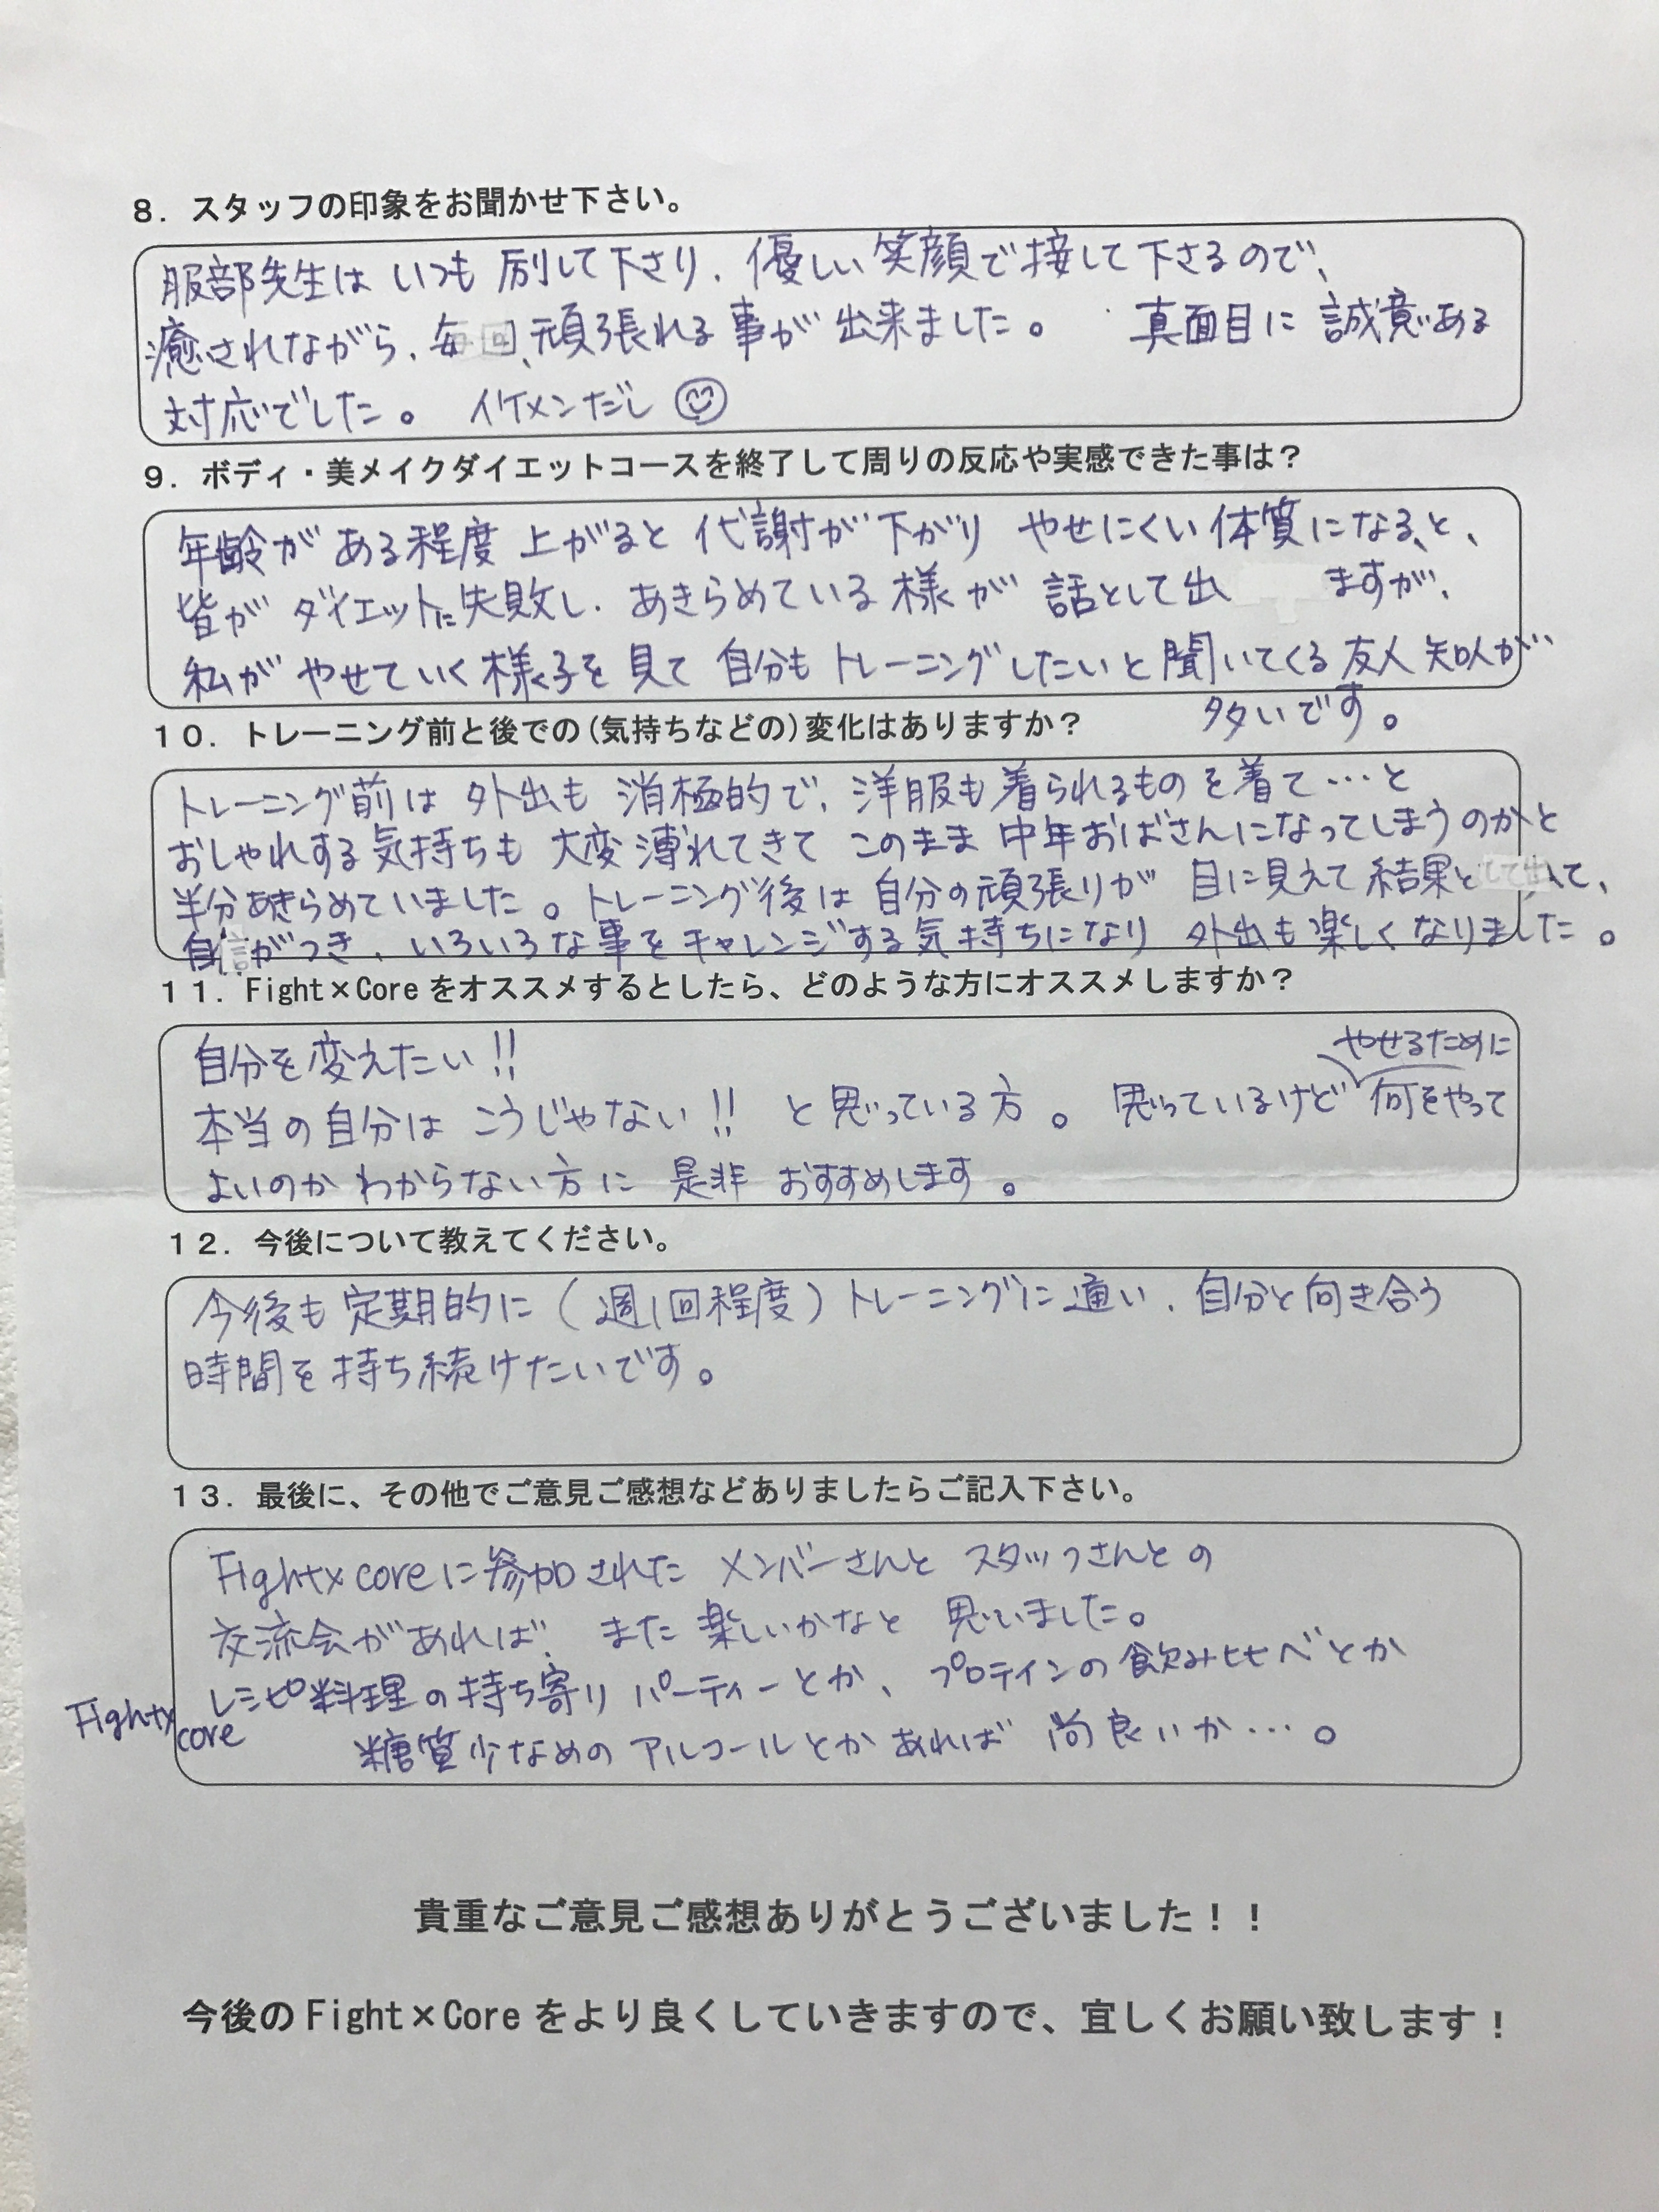 8．スタッフの印象をお聞かせ下さい。
服部先生は いつも 励して下さり、優しい笑顔で接して下さるので、
癒されながら、毎回、頑張れる事が出来ました。 真面目に誠意ある
対応でした。 イケメンだし
9．ボディ・美メイクダイエットコースを終了して周りの反応や実感できた事は？
年齢がある程度 上がると 代謝が下がり やせにくい体質になる、と、
皆が ダイエットに失敗し、あきらめている様が 話として出 ますが、
私が やせていく様子を見て 自分もトレーニングしたいと聞いてくる友人知人が
多いです。
10．トレーニング前と後での(気持ちなどの)変化はありますか？
トレーニング前は 外出も 消極的で、洋服も着られるものを着て…と
おしゃれする気持ちも 大変薄れてきて このまま中年おばさんになってしまうのかと
半分あきらめていました。トレーニング後は自分の頑張りが 目に見えて結果として出て、
自信がつき、いろいろな事をチャレンジする気持ちになり 外出も楽しくなりました。
11．Fight×Coreをオススメするとしたら、どのような方にオススメしますか？
自分を変えたい!!
やせるために
本当の自分は こうじゃない!! と思っている方。思っているけど 何をやって
よいのか わからない方に 是非 おすすめします。
12．今後について教えてください。
今後も定期的に（週1回程度）トレーニングに通い、自分と向き合う
時間を持ち続けたいです。
13．最後に、その他でご意見ご感想などありましたらご記入下さい。
Fight×coreに参加された メンバーさんと スタッフさんとの
交流会があれば、また楽しいかなと 思いました。
Fight×core レシピ料理の持ち寄りパーティーとか、プロテインの飲み比べとか
糖質少なめのアルコールとかあれば 尚良いか…。
貴重なご意見ご感想ありがとうございました！！
今後のFight×Coreをより良くしていきますので、宜しくお願い致します！